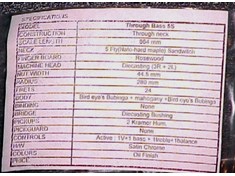 SPECIFICATIONS
MODEL Through Bass 5S
CONSTRUCTION Through neck
SCALE LENGTH 864 mm
NECK 5 Ply(Nato+hard maple) Sandwich
FINGER BOARD Rosewood
MACHINE HEAD Diecasting (3R + 2L)
NUT WIDTH 44.5 mm
RADIUS
FRETS 24
BODY Bird eye's Bubinga + mahogany +Bird eye's Bubinga
BINDING None
BRIDGE Diecasting Bushing
PICKUPS 2 Kramer Hum.
PICKGUARD None
CONTROLS Active : 1V+1 +
H/W Satin Chrome
COLORS Oil Finish
PRICE